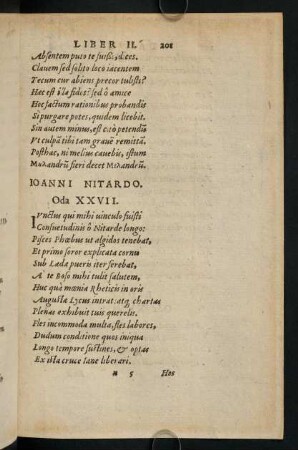 LIBER II. 201
Absentem puto te fuisse, decet.
Clauem sed solito loco iacentem
Tecum cur abiens precor tulisti?
Hæc est illa fides? sed ô amice
Hoc factum rationibus probandis
Si purgare potes, quidem licebit.
Sin autem minus, est cito petendũ
Vt culpã tibi tam grauẽ remittã.
Posthàc, ni melius cauebis, istum
Μαλανδρũ fieri decet Μιλανδρũ.
IOANNI NITARDO.
Oda XXVII.
IVnctus qui mihi vinculo fuisti
Consuetudinis ô Nitarde longo:
Pisces Phœbus ut algidos tenebat,
Et primo foror explicata cornu
Sub Læda pueris iter ferebat,
A te Boso mihi tulit salutem,
Huc quà mœnia Rheticis in oris
Augusta Lycus intrat: atq; chartas
Plenas exhibuit tuis querelis.
Fles incommoda multa, fles labores,
Dudum conditione quos iniqua
Longo tempore sustines, & optas
Ex ista cruce iane liberari.
n 5 Hos